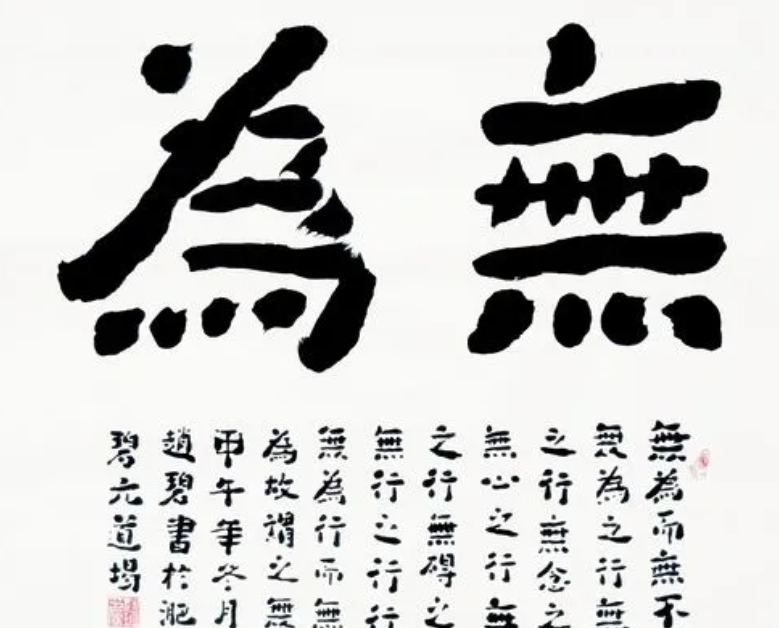 無為
無為而無不
無為之行無
之行無念之
無心之行無
之行無碍之
無行之行行
無為行而無
為故謂之無
甲午年冬月
趙碧書於淝
碧元道場